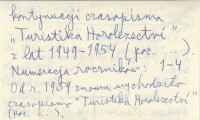 kontynuacji czasopisma
"Turistika Horolezectví"
z lat 1949-1954 (poz. ...).
Numeracja roczników: 1-4
Od r. 1959 znowu wychodziło
czasopismo "Turistika Horolezectví"
(poz. ...).